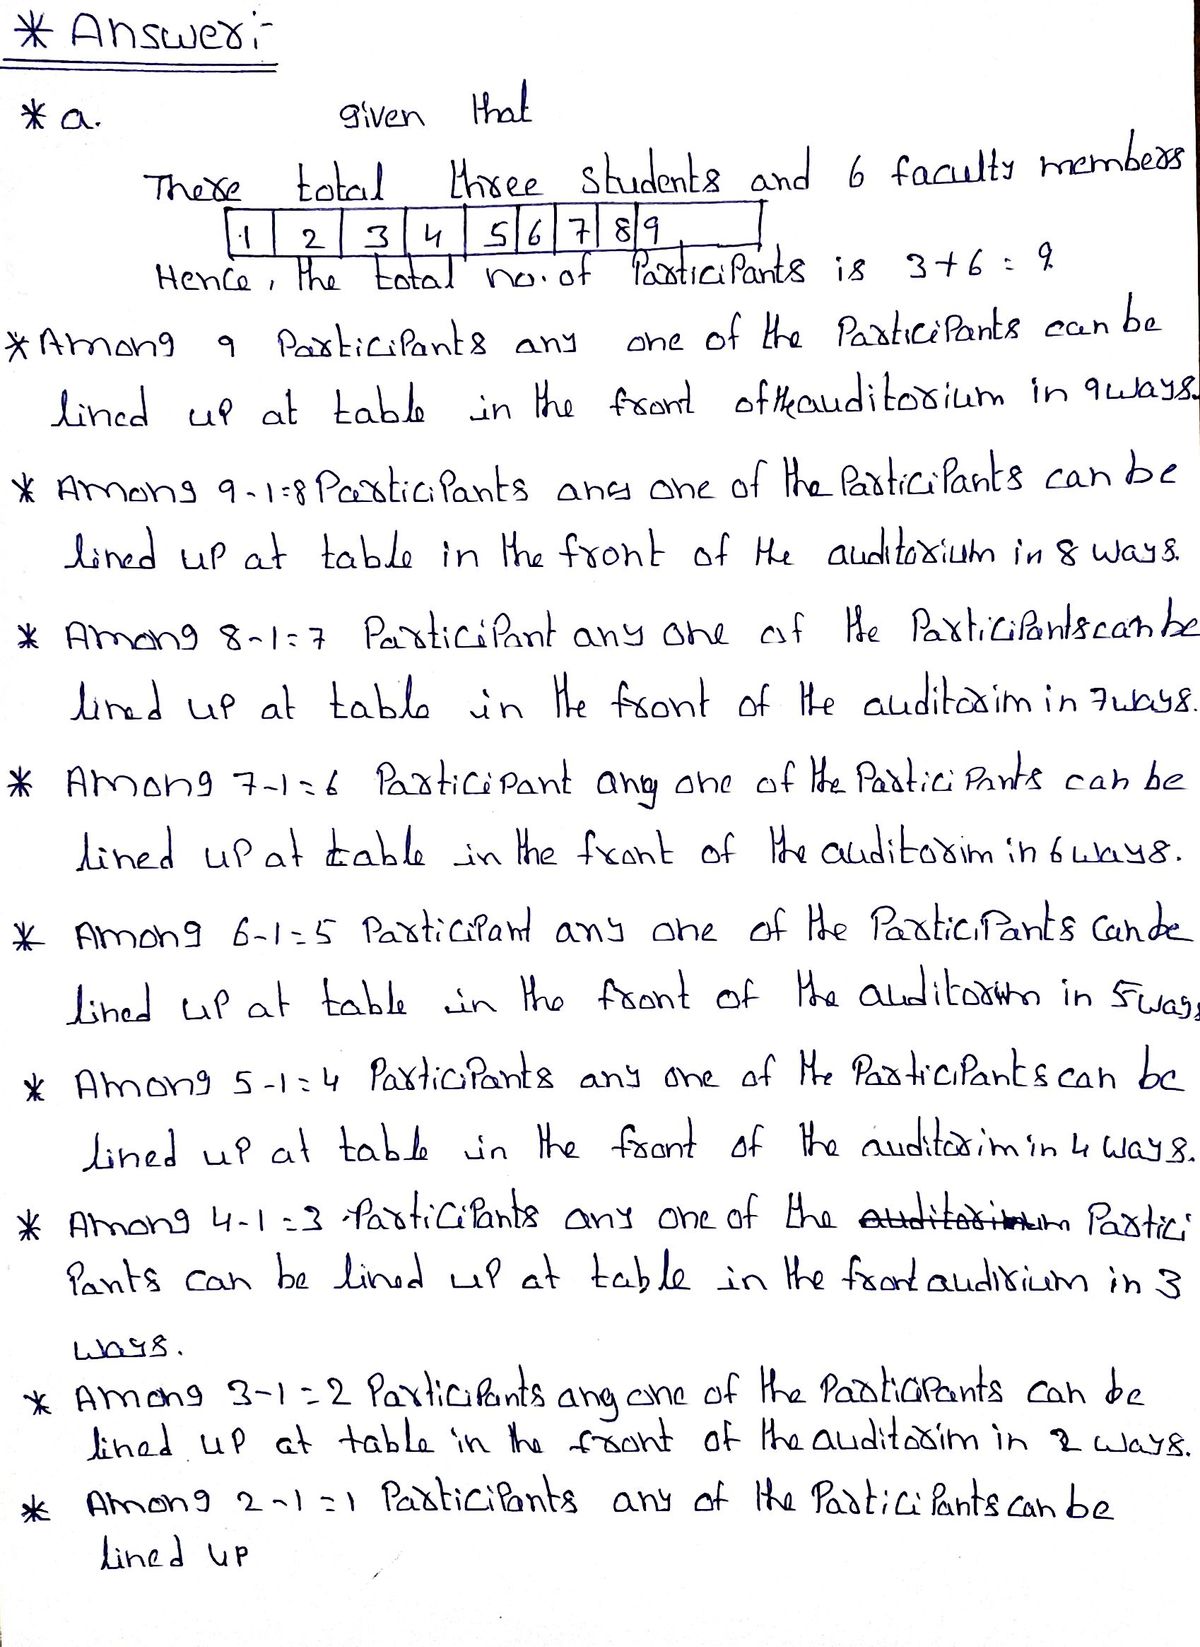 * Answer:-
* a. given that
There total three students and 6 faculty members
1 2 3 4 5 6 7 8 9
Hence, the total no. of Participants is 3+6 = 9
* Among 9 Participants any one of the Participants can be
lined up at table in the front of the auditorium in 9 ways.
* Among 9-1=8 Participants any one of the Participants can be
lined up at table in the front of the auditorium in 8 ways.
* Among 8-1=7 Participant any one of the Participants can be
lined up at table in the front of the auditorim in 7 ways.
* Among 7-1=6 Participant any one of the Participants can be
lined up at table in the front of the auditorim in 6 ways.
* Among 6-1=5 Participant any one of the Participants can be
lined up at table in the front of the auditorium in 5 ways
* Among 5-1=4 Participants any one of the Participants can be
lined up at table in the front of the auditorim in 4 ways.
* Among 4-1=3 Participants any one of the auditorimum Partici
Pants can be lined up at table in the front audirium in 3
ways.
* Among 3-1=2 Participants any one of the Participants can be
lined up at table in the front of the auditorim in 2 ways.
* Among 2-1=1 Participants any of the Participants can be
lined up